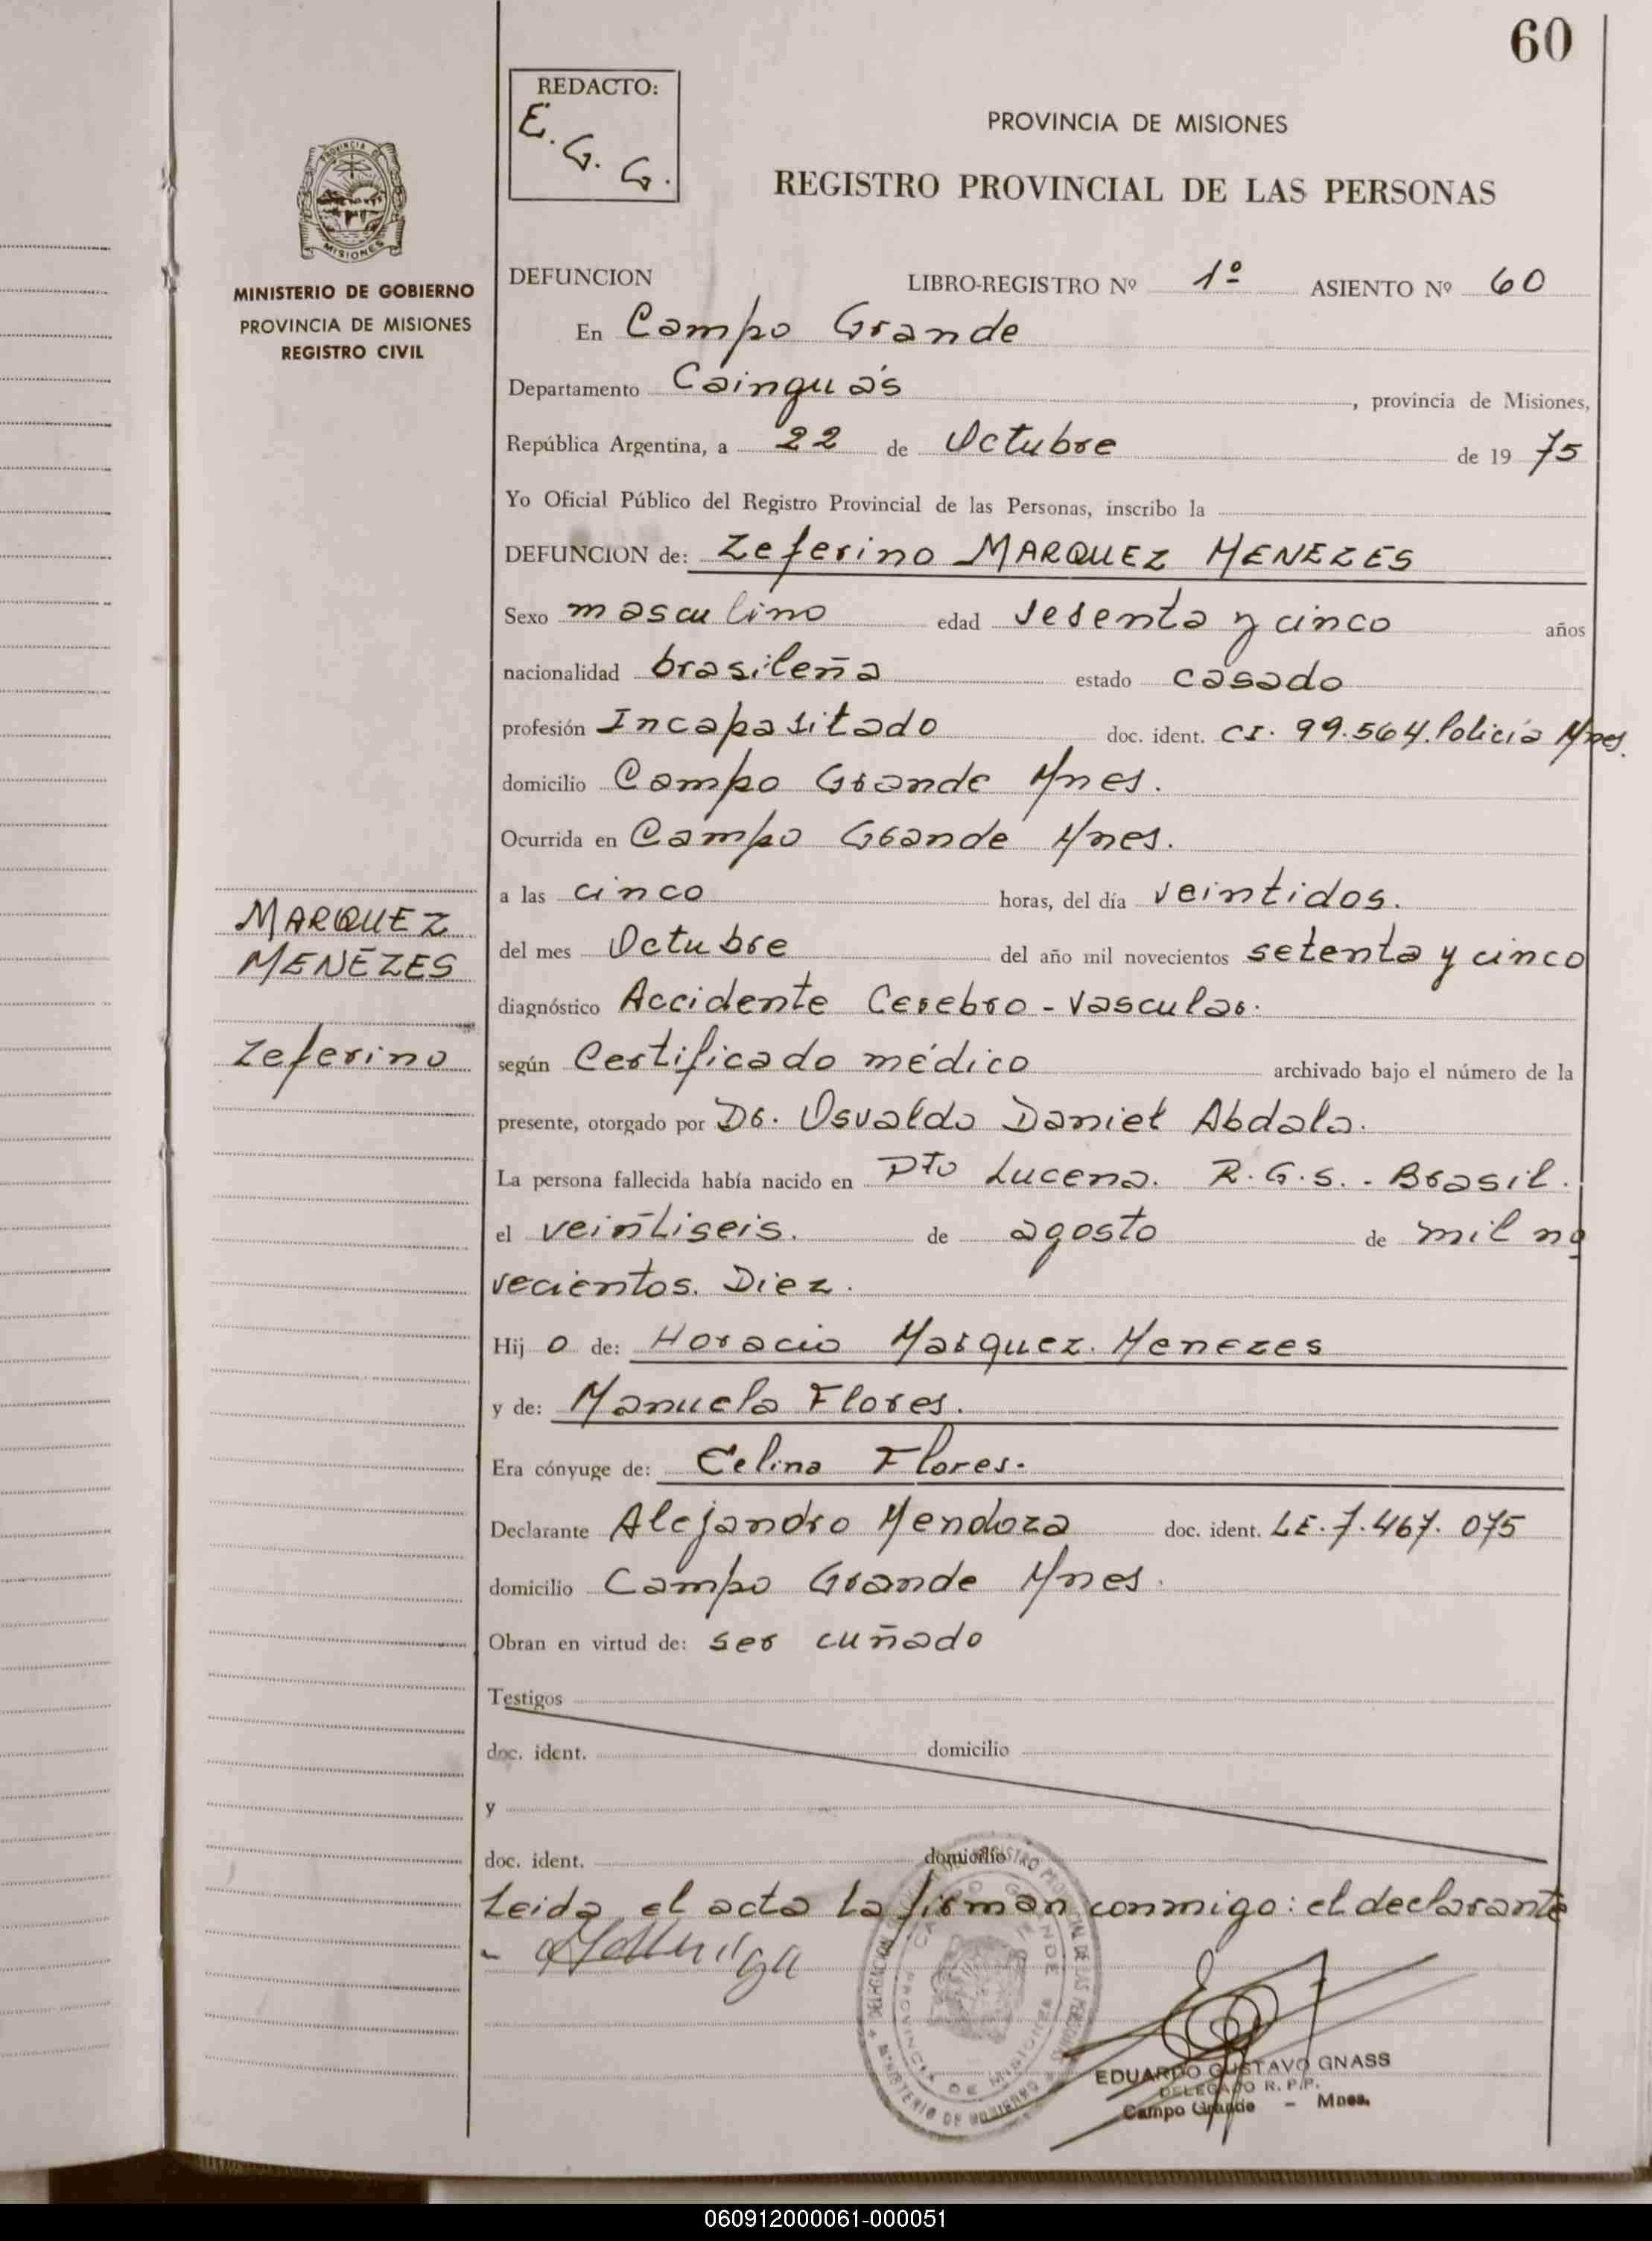 60
REDACTO:
E. G. G.
PROVINCIA DE MISIONES
REGISTRO PROVINCIAL DE LAS PERSONAS
MINISTERIO DE GOBIERNO
PROVINCIA DE MISIONES
REGISTRO CIVIL
DEFUNCION LIBRO-REGISTRO Nº 1º ASIENTO Nº 60
En Campo Grande
Departamento Cainguás, provincia de Misiones,
República Argentina, a 22 de Octubre de 19 75
Yo Oficial Público del Registro Provincial de las Personas, inscribo la
DEFUNCION de: Zeferino MARQUEZ MENEZES
Sexo masculino edad sesenta y cinco años
nacionalidad brasileña estado casado
profesión Incapasitado doc. ident. CI. 99.564. Policía Mnes.
domicilio Campo Grande Mnes.
Ocurrida en Campo Grande Mnes.
a las cinco horas, del día veintidos.
del mes Octubre del año mil novecientos setenta y cinco
diagnóstico Accidente Cerebro-vascular.
según Certificado médico archivado bajo el número de la
presente, otorgado por Dr. Osvaldo Daniel Abdala.
La persona fallecida había nacido en Pto Lucena. R.G.S.-Brasil.
el veintiseis. de agosto de mil no
vecientos. Diez.
Hij o de: Horacio Marquez. Menezes
y de: Manuela Flores.
Era cónyuge de: Celina Flores.
Declarante Alejandro Mendoza doc. ident. LE. 7.467.075
domicilio Campo Grande Mnes.
Obran en virtud de: ser cuñado
Testigos
doc. ident. domicilio
y
doc. ident. domicilio
Leida el acta la firman conmigo: el declarante
MARQUEZ
MENEZES
Zeferino
EDUARDO GUSTAVO GNASS
DELEGADO R. P. P.
Campo Grande - Mnes.
060912000061-000051